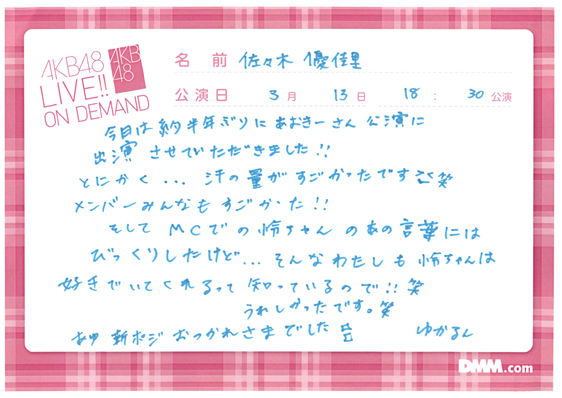 AKB48
LIVE!!
ON DEMAND
AKB
48
名 前 佐々木 優佳里
公演日 3 月 13 日 18 : 30 公演
今日は約半年ぶりにあおきーさん公演に
出演 させていただきました!!
とにかく... 汗の量がすごかったです 笑
メンバーみんなもすごかった!!
そして MCでの怜ちゃん のあの言葉には
びっくりしたけど... そんなわたしも 怜ちゃんは
好きでいてくれるって 知っているので!! 笑
うれしかったです。笑
新ポジ おつかれさまでした
ゆかるん
DMM.com